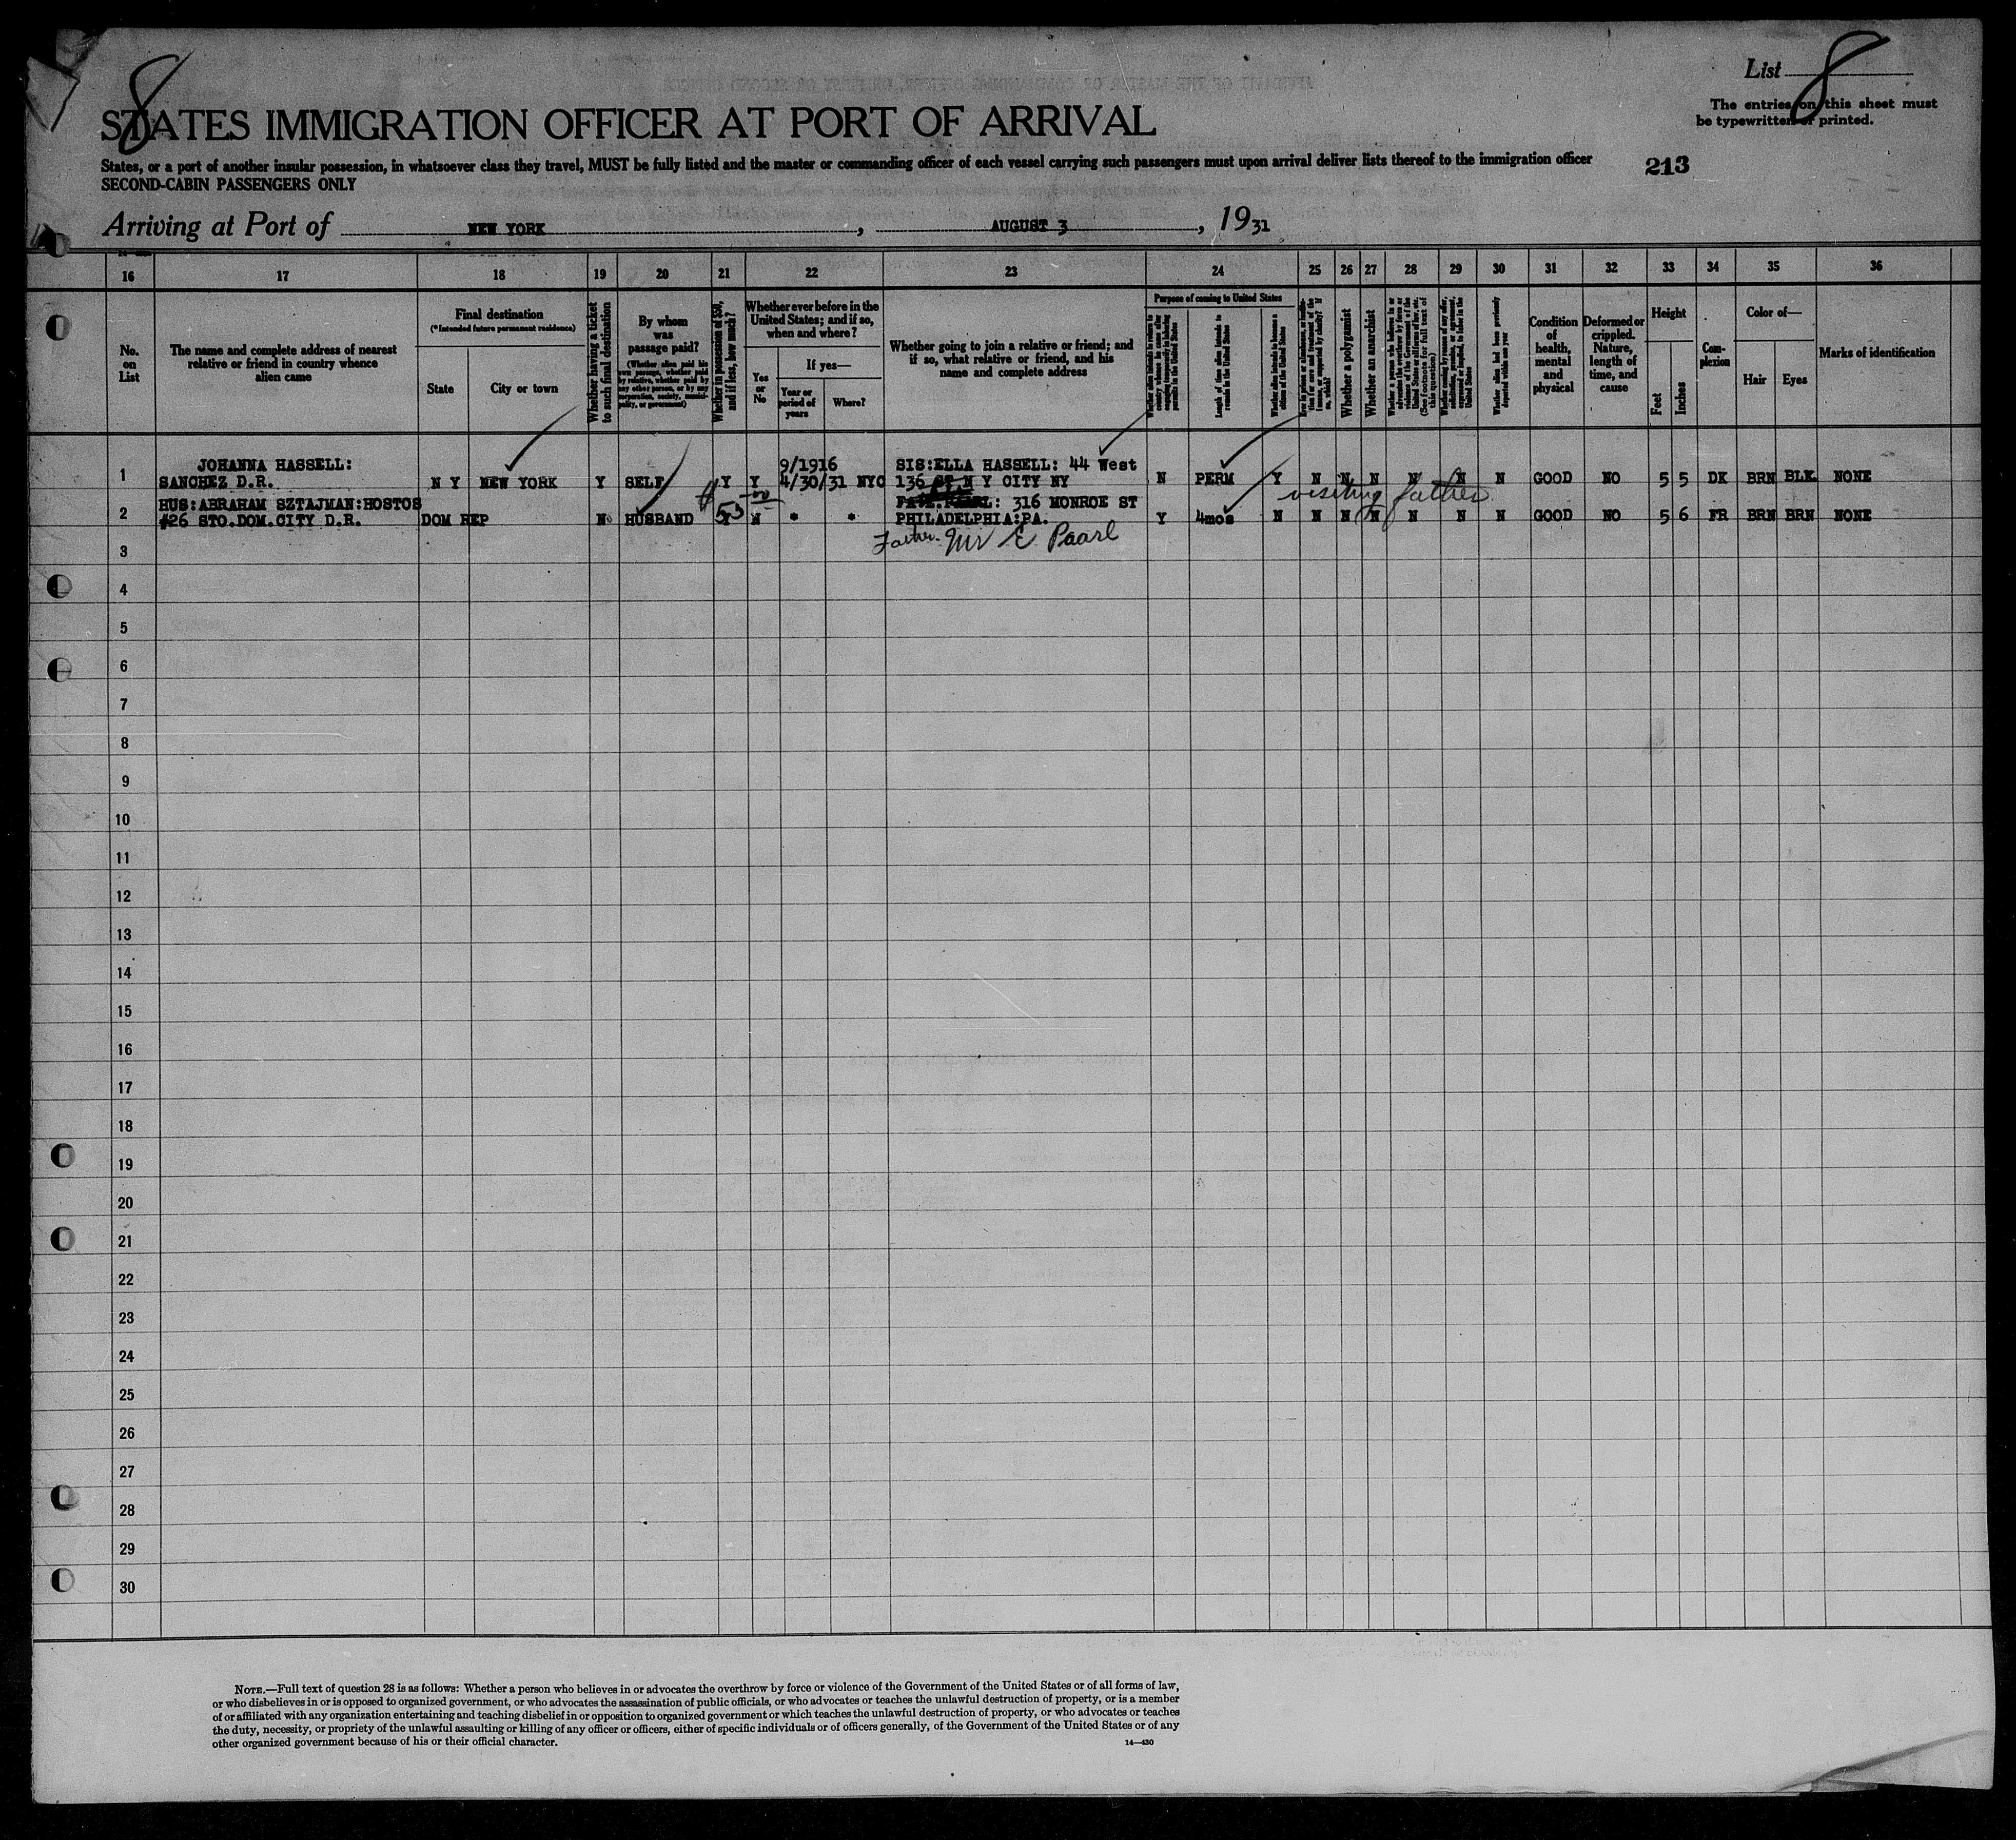 8
List 8
The entries on this sheet must
be typewritten or printed.
STATES IMMIGRATION OFFICER AT PORT OF ARRIVAL
States, or a port of another insular possession, in whatsoever class they travel, MUST be fully listed and the master or commanding officer of each vessel carrying such passengers must upon arrival deliver lists thereof to the immigration officer
213
SECOND-CABIN PASSENGERS ONLY
Arriving at Port of NEW YORK , AUGUST 3 , 1931
16 17 18 19 20 21 22 23 24 25 26 27 28 29 30 31 32 33 34 35 36
No.
on
List
The name and complete address of nearest
relative or friend in country whence
alien came
Final destination
(*Intended future permanent residence)
State
City or town
Whether having a ticket
to such final destination
By whom
was
passage paid?
(Whether alien paid his
own passage, whether paid
by relative, whether paid by
any other person, or by any
corporation, society, munici-
pality, or government)
Whether in possession of $50,
and if less, how much?
Whether ever before in the
United States; and if so,
when and where?
Yes
or
No
If yes—
Year or
period of
years
Where?
Whether going to join a relative or friend; and
if so, what relative or friend, and his
name and complete address
Purpose of coming to United States
Length of time alien intends to
remain in the United States
Whether alien intends to become a
citizen of the United States
Whether a polygamist
Whether an anarchist
(See footnote for full text of
this question)
Whether alien had been previously
deported within one year
Condition
of
health,
mental
and
physical
Deformed or
crippled.
Nature,
length of
time, and
cause
Height
Feet
Inches
Com-
plexion
Color of—
Hair
Eyes
Marks of identification
JOHANNA HASSELL: 9/1916 SIS:ELLA HASSELL: 44 West
1 SANCHEZ D.R. N Y NEW YORK Y SELF Y Y 4/30/31 NYC 136 ST N Y CITY NY N PERM Y N N N N N N GOOD NO 5 5 DK BRN BLK NONE
visiting father
HUS:ABRAHAM SZTAJMAN:HOSTOS $50 00 316 MONROE ST
2 #26 STO.DOM.CITY D.R. DOM REP No HUSBAND N * * PHILADELPHIA:PA. Y 4mos N N N N N N N GOOD NO 5 6 FR BRN BRN NONE
Father. Mr E Paarl
3
4
5
6
7
8
9
10
11
12
13
14
15
16
17
18
19
20
21
22
23
24
25
26
27
28
29
30
NOTE.—Full text of question 28 is as follows: Whether a person who believes in or advocates the overthrow by force or violence of the Government of the United States or of all forms of law,
or who disbelieves in or is opposed to organized government, or who advocates the assassination of public officials, or who advocates or teaches the unlawful destruction of property, or is a member
of or affiliated with any organization entertaining and teaching disbelief in or opposition to organized government or which teaches the unlawful destruction of property, or who advocates or teaches
the duty, necessity, or propriety of the unlawful assaulting or killing of any officer or officers, either of specific individuals or of officers generally, of the Government of the United States or of any
other organized government because of his or their official character.
14—430